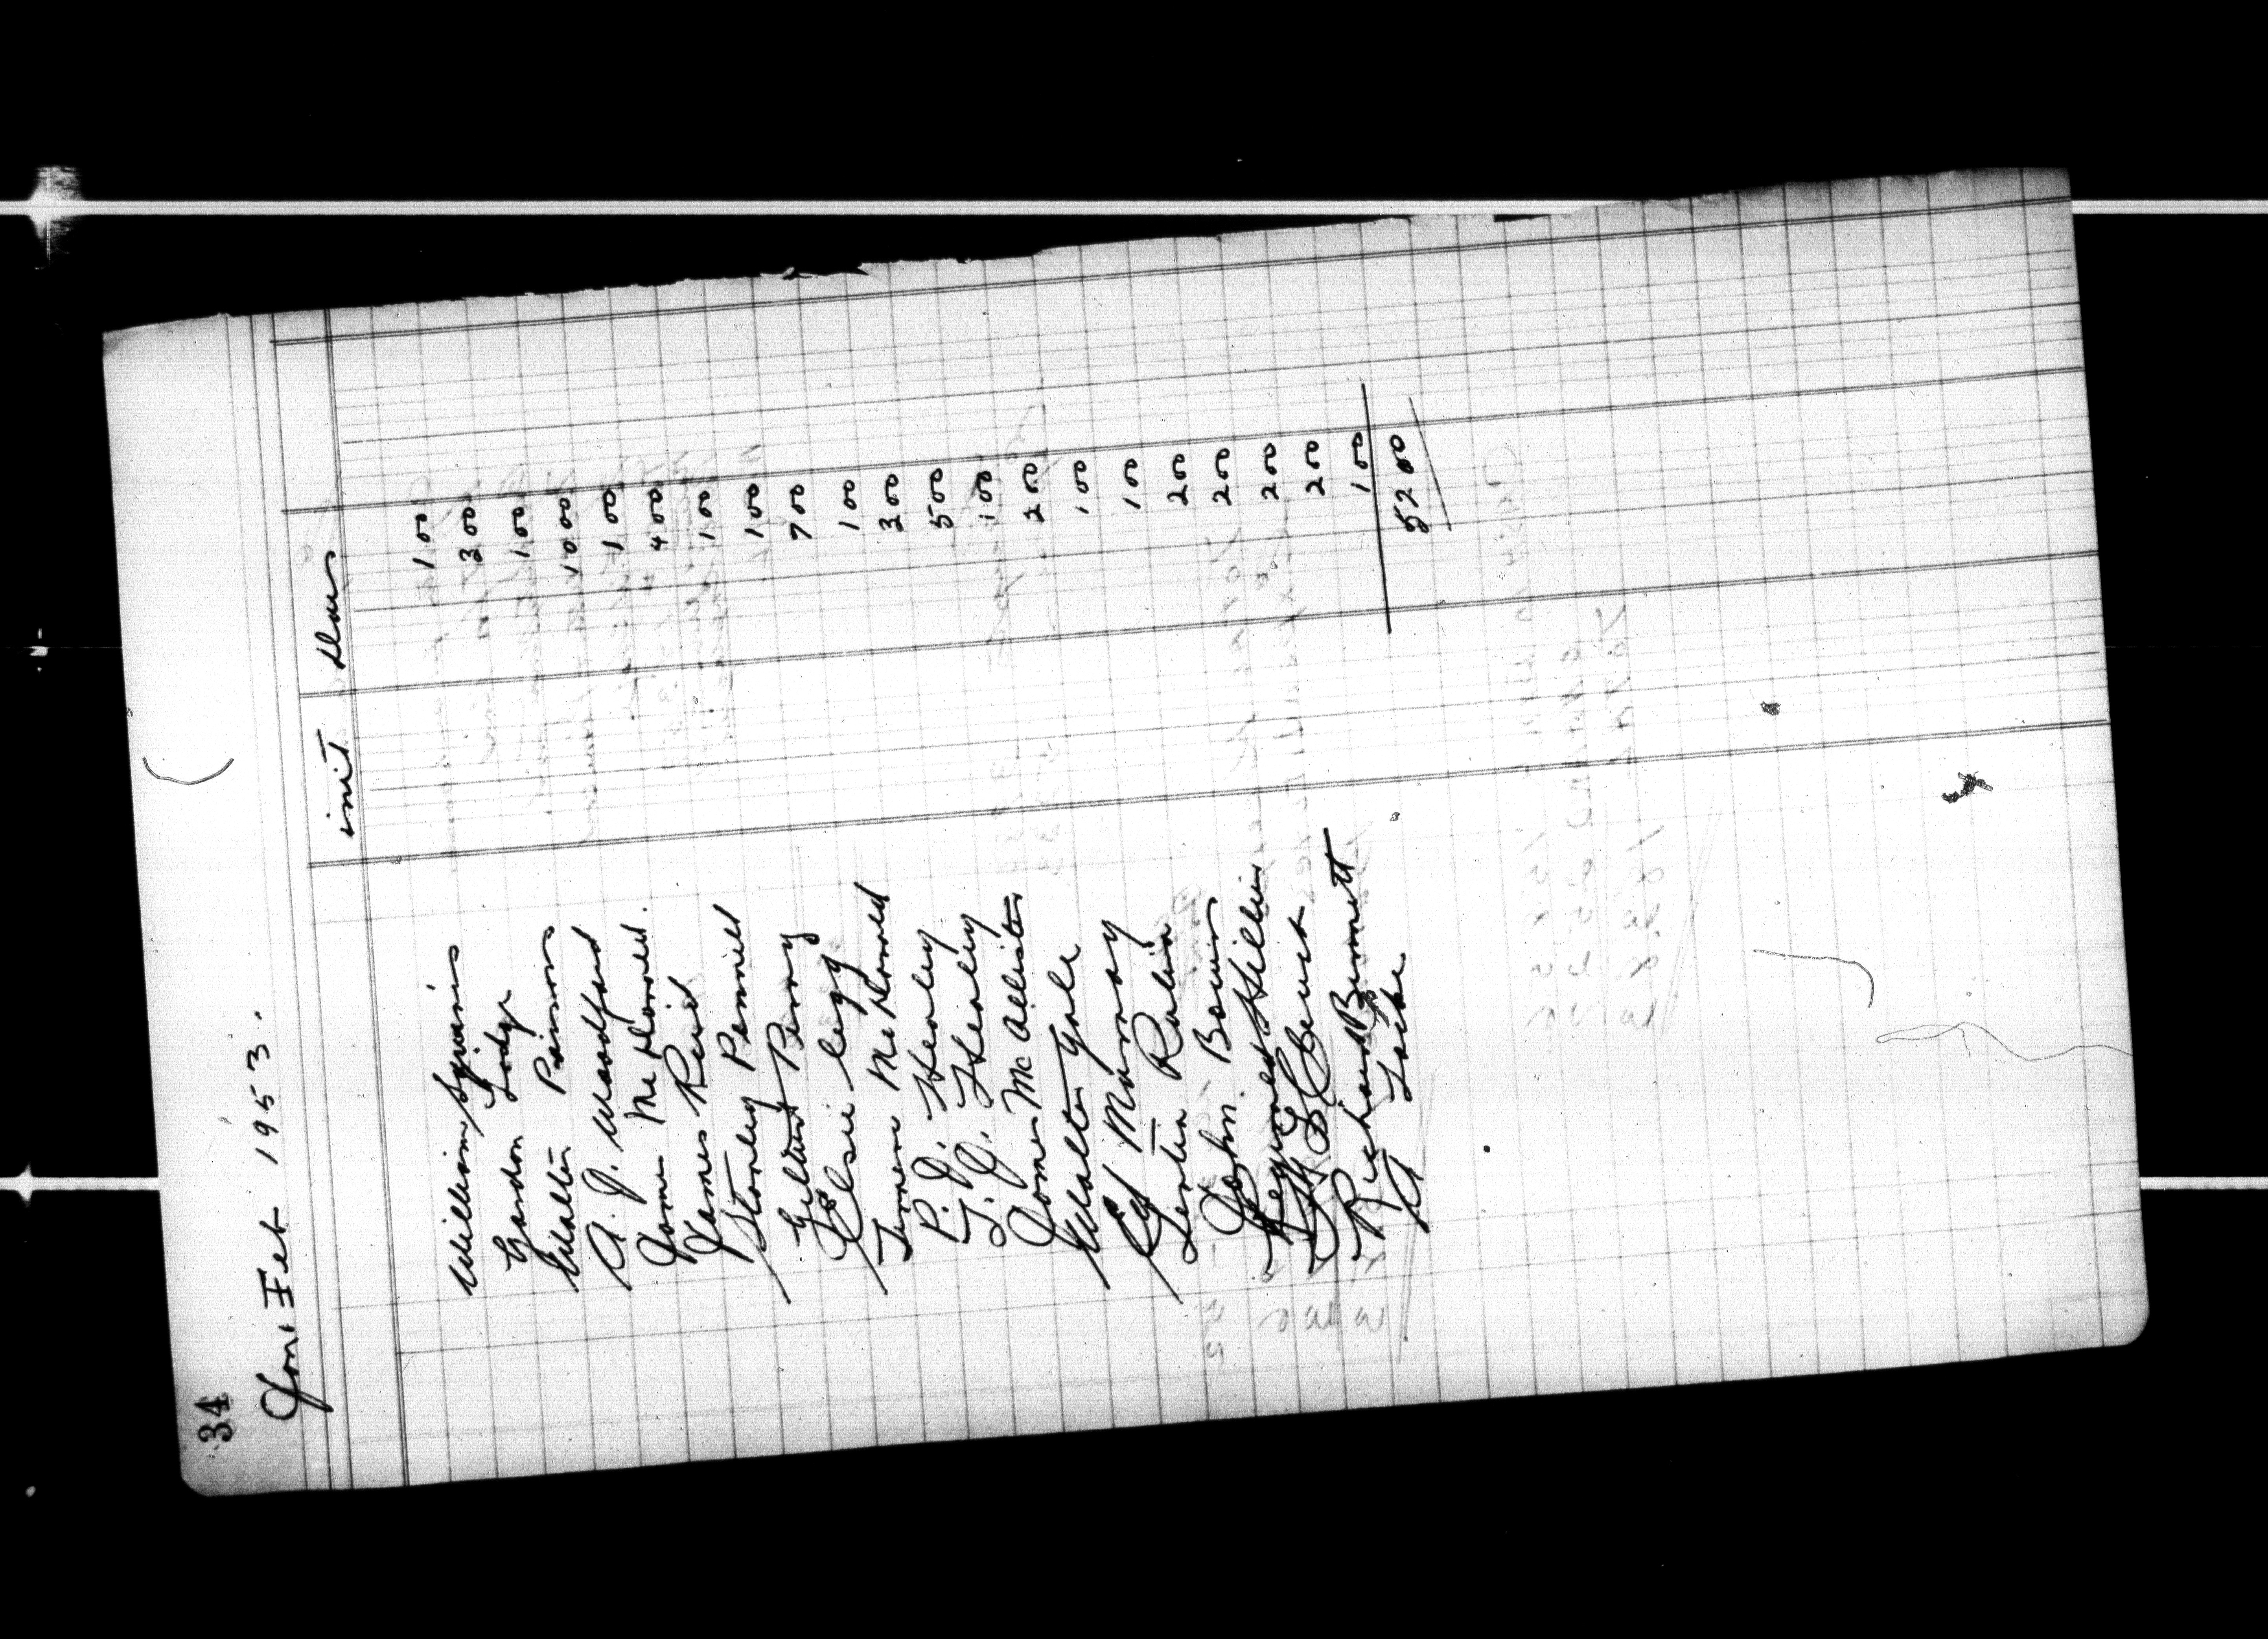 34
Jan & Feb 1953.
init Dues
William Squires 1 00
Gordon Lodge 3 00
Walter Parsons 1 00
A. J. Woodford 10 00
James McDonald. 1 00
James Reid 4 00
Stanley Pennell 1 00
Gilbert Penny 1 00
Elsie Legg 7 00
McDonald 1 00
P. J. Healey 3 00
T. J. Healey 5 00
James McAllister 1 00
Walter Yole 2 00
Maroney 1 00
1 00
John Bowers 2 00
Reginald Hillier 2 00
2 00
Richard Bennett 2 00
A Locke 1 00
52 00